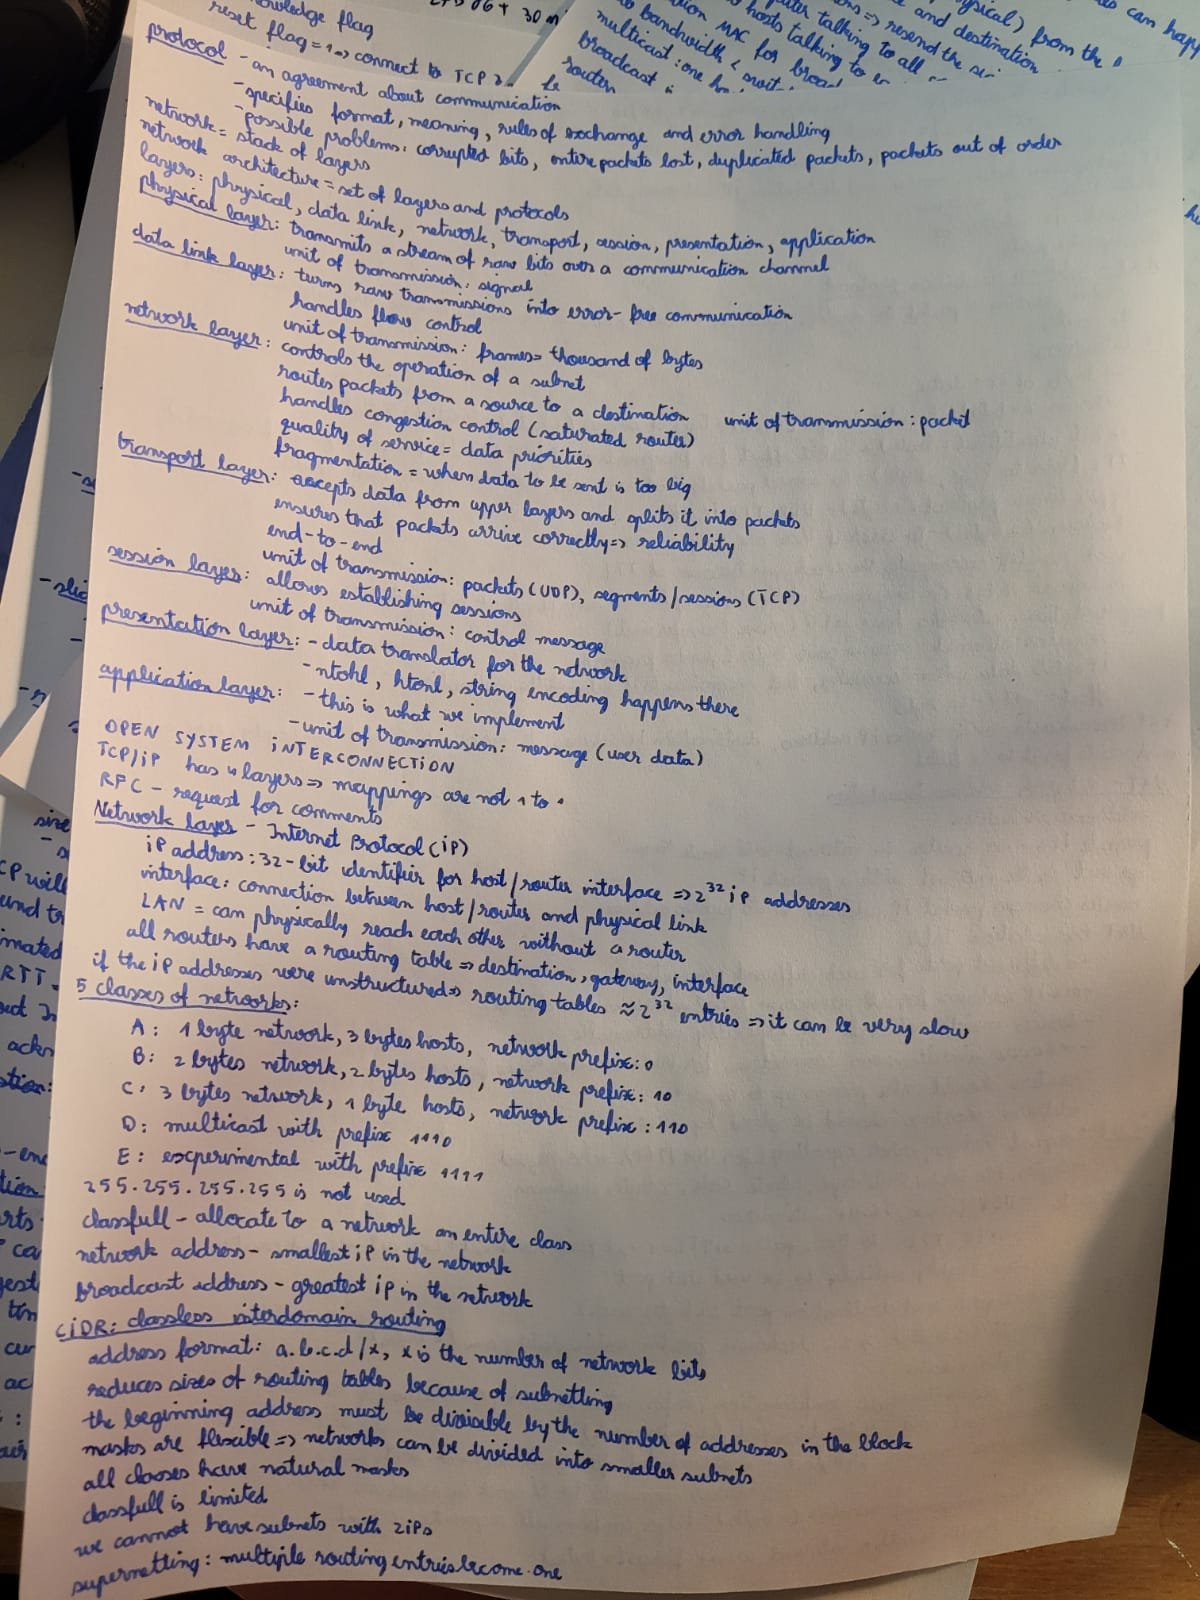 owledge flag
reset flag=1=> connect to TCP
30 m
protocol - an agreement about communication
- specifies format, meaning, rules of exchange and error handling
- possible problems: corrupted bits, entire packets lost, duplicated packets, packets out of order
network = stack of layers
network architecture = set of layers and protocols
layers: physical, data link, network, transport, session, presentation, application
physical layer: transmits a stream of raw bits over a communication channel
unit of transmission: signal
data link layer: turns raw transmissions into error-free communication
handles flow control
unit of transmission: frames= thousand of bytes
network layer: controls the operation of a subnet
routes packets from a source to a destination unit of transmission: packet
handles congestion control (saturated router)
quality of service= data priorities
fragmentation = when data to be sent is too big
transport layer: accepts data from upper layers and splits it into packets
ensures that packets arrive correctly=> reliability
end-to-end
unit of transmission: packets (UDP), segments/sessions (TCP)
session layer: allows establishing sessions
unit of transmission: control message
presentation layer: - data translator for the network
- ntohl, htonl, string encoding happens there
application layer: - this is what we implement
- unit of transmission: message (user data)
OPEN SYSTEM iNTERCONNECTiON
TCP/iP has 4 layers=> mappings are not 1 to
RFC - request for comments
Network layer - Internet Protocol (iP)
iP address: 32-bit identifier for host/router interface => 2^32 iP addresses
interface: connection between host/router and physical link
LAN = can physically reach each other without a router
all routers have a routing table => destination, gateway, interface
if the iP addresses were unstructured=> routing tables ≈ 2^32 entries => it can be very slow
5 classes of networks:
A: 1 byte network, 3 bytes hosts, network prefix: 0
B: 2 bytes network, 2 bytes hosts, network prefix: 10
C: 3 bytes network, 1 byte hosts, network prefix: 110
D: multicast with prefix 1110
E: experimental with prefix 1111
255.255.255.255 is not used
classfull - allocate to a network an entire class
network address - smallest iP in the network
broadcast address - greatest ip in the network
CiDR: classless interdomain routing
address format: a.b.c.d/x, x is the number of network bits
reduces sizes of routing tables because of subnetting
the beginning address must be divisible by the number of addresses in the block
masks are flexible => networks can be divided into smaller subnets
all classes have natural masks
classfull is limited
we cannot have subnets with 2iPs
supernetting: multiple routing entries become one